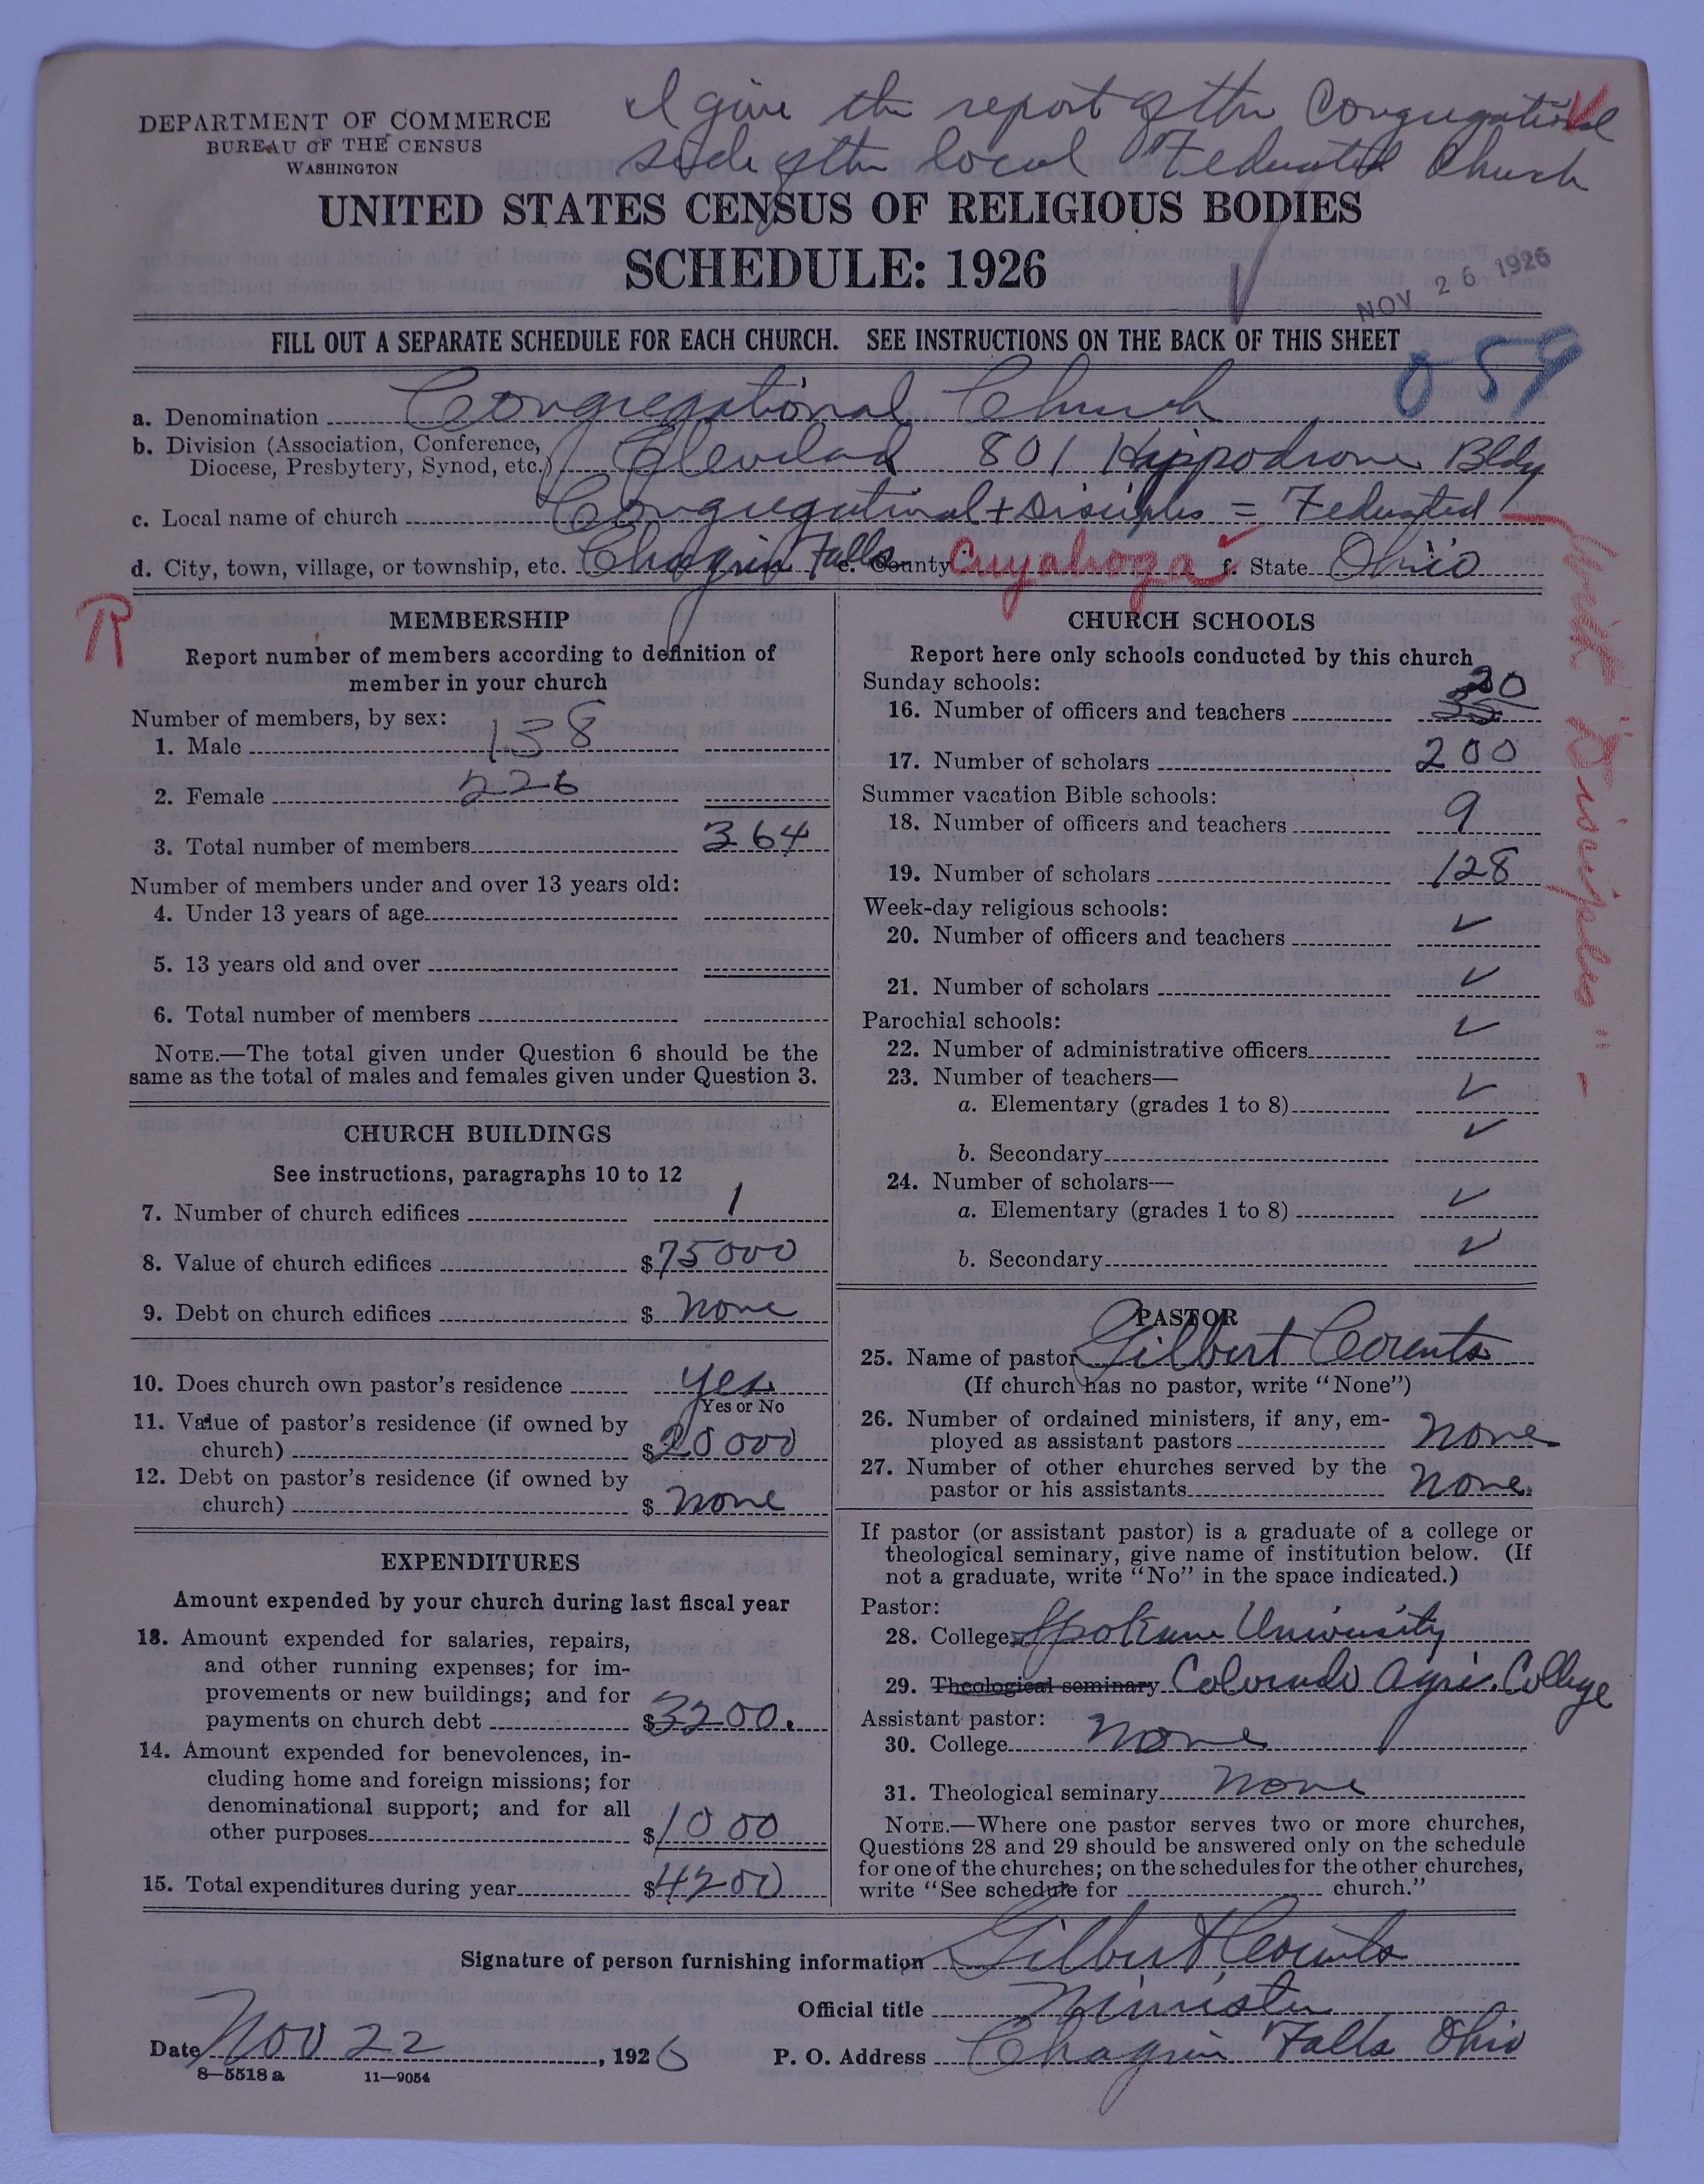 I give the report of the Congregational
side of the local Federated Church
DEPARTMENT OF COMMERCE
BUREAU OF THE CENSUS
WASHINGTON
UNITED STATES CENSUS OF RELIGIOUS BODIES
SCHEDULE: 1926
NOV 26 1926
FILL OUT A SEPARATE SCHEDULE FOR EACH CHURCH. SEE INSTRUCTIONS ON THE BACK OF THIS SHEET
059
a. Denomination Congregational Church
b. Division (Association, Conference,
Diocese, Presbytery, Synod, etc.) Clevelad 801 Hippodrome Bldg
c. Local name of church Congregational + Disciples = Federated
d. City, town, village, or township, etc. Chagrin Falls e. County Cuyahoga f. State Ohio
R
MEMBERSHIP
Report number of members according to definition of
member in your church
Number of members, by sex:
1. Male 138
2. Female 226
3. Total number of members 364
Number of members under and over 13 years old:
4. Under 13 years of age
5. 13 years old and over
6. Total number of members
NOTE.—The total given under Question 6 should be the
same as the total of males and females given under Question 3.
CHURCH BUILDINGS
See instructions, paragraphs 10 to 12
7. Number of church edifices 1
8. Value of church edifices $75000
9. Debt on church edifices $ none
10. Does church own pastor's residence yes
Yes or No
11. Value of pastor's residence (if owned by
church) $20000
12. Debt on pastor's residence (if owned by
church) $ none
EXPENDITURES
Amount expended by your church during last fiscal year
13. Amount expended for salaries, repairs,
and other running expenses; for im-
provements or new buildings; and for
payments on church debt $3200.
14. Amount expended for benevolences, in-
cluding home and foreign missions; for
denominational support; and for all
other purposes $1000
15. Total expenditures during year $4200
CHURCH SCHOOLS
Report here only schools conducted by this church
Sunday schools:
16. Number of officers and teachers 35 20
17. Number of scholars 200
Summer vacation Bible schools:
18. Number of officers and teachers 9
19. Number of scholars 128
Week-day religious schools:
20. Number of officers and teachers ✓
21. Number of scholars ✓
Parochial schools:
22. Number of administrative officers ✓
23. Number of teachers—
a. Elementary (grades 1 to 8) ✓
b. Secondary ✓
24. Number of scholars—
a. Elementary (grades 1 to 8) ✓
b. Secondary ✓
PASTOR
25. Name of pastor Gilbert Counts
(If church has no pastor, write "None")
26. Number of ordained ministers, if any, em-
ployed as assistant pastors none
27. Number of other churches served by the
pastor or his assistants none.
If pastor (or assistant pastor) is a graduate of a college or
theological seminary, give name of institution below. (If
not a graduate, write "No" in the space indicated.)
Pastor:
28. College Spokane University
29. Theological seminary Colorado Agri. College
Assistant pastor:
30. College none
31. Theological seminary none
NOTE.—Where one pastor serves two or more churches,
Questions 28 and 29 should be answered only on the schedule
for one of the churches; on the schedules for the other churches,
write "See schedule for church."
Signature of person furnishing information Gilbert Counts
Official title Minister
Date Nov 22, 1926 P. O. Address Chagrin Falls Ohio
8—5518 a 11—9054
"Disciples"